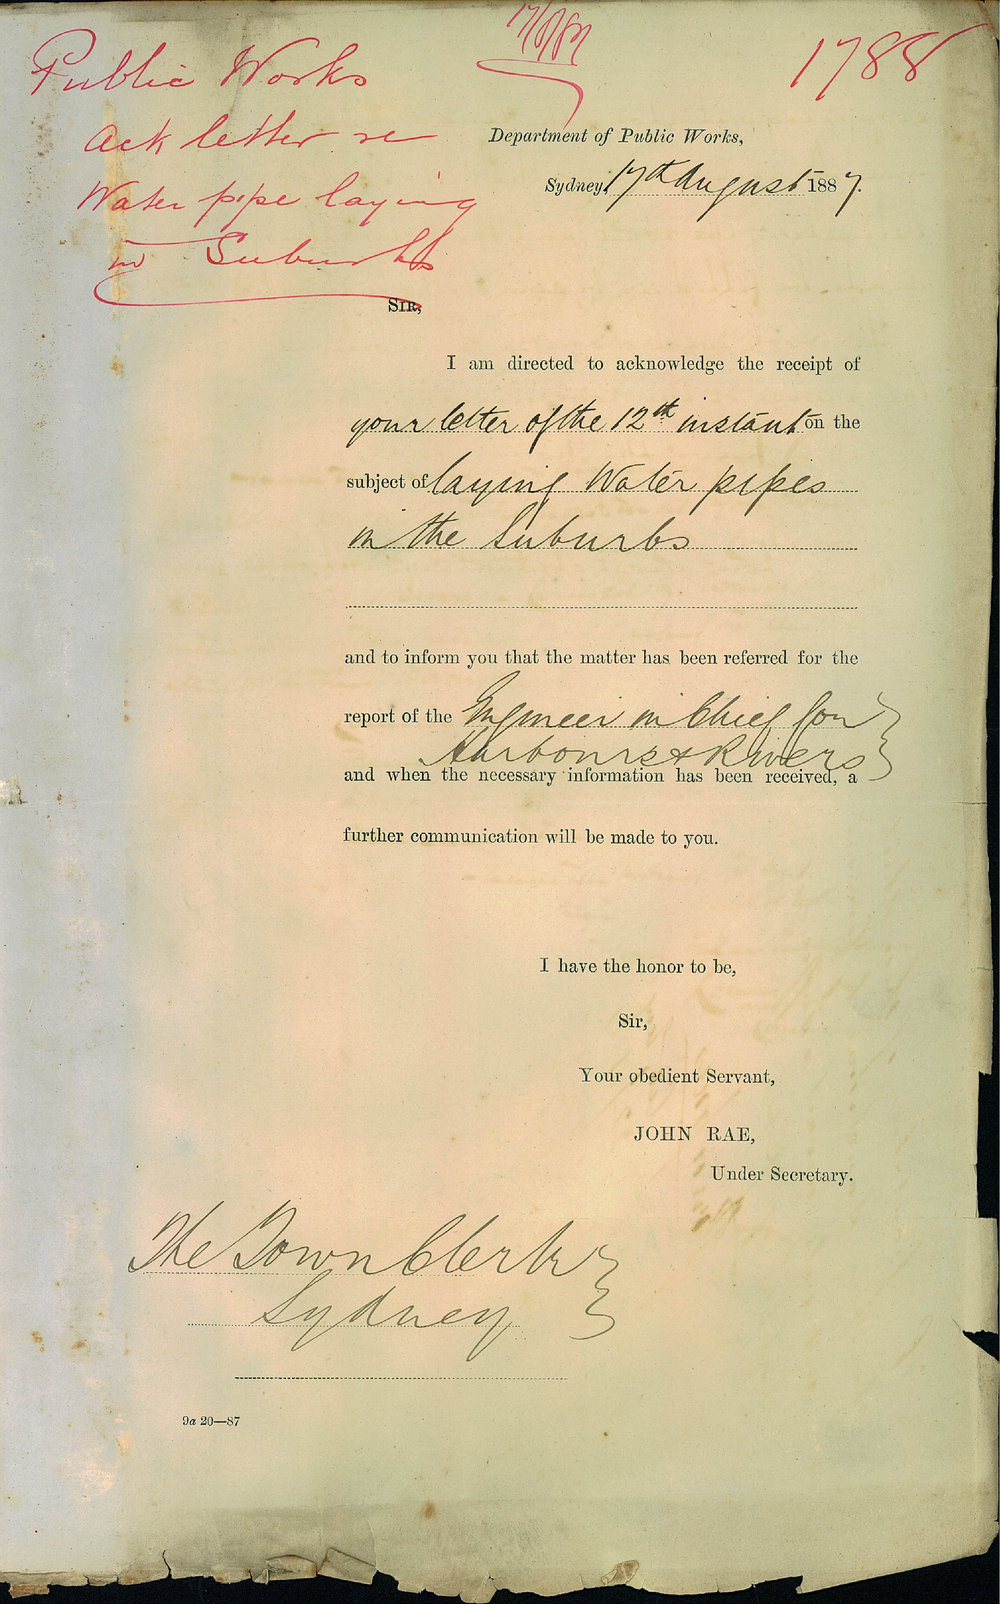 17/8/87
1788
Public Works
Ack letter re
Water pipe laying
in Suburbs
Department of Public Works,
Sydney, 17th August 1887.
SIR,
I am directed to acknowledge the receipt of
your letter of the 12th instant on the
subject of laying Water pipes
in the Suburbs
and to inform you that the matter has been referred for the
report of the Engineer in Chief for
Harbours & Rivers
and when the necessary information has been received, a
further communication will be made to you.
I have the honor to be,
Sir,
Your obedient Servant,
JOHN RAE,
Under Secretary.
The Town Clerk
Sydney
9a 20—87